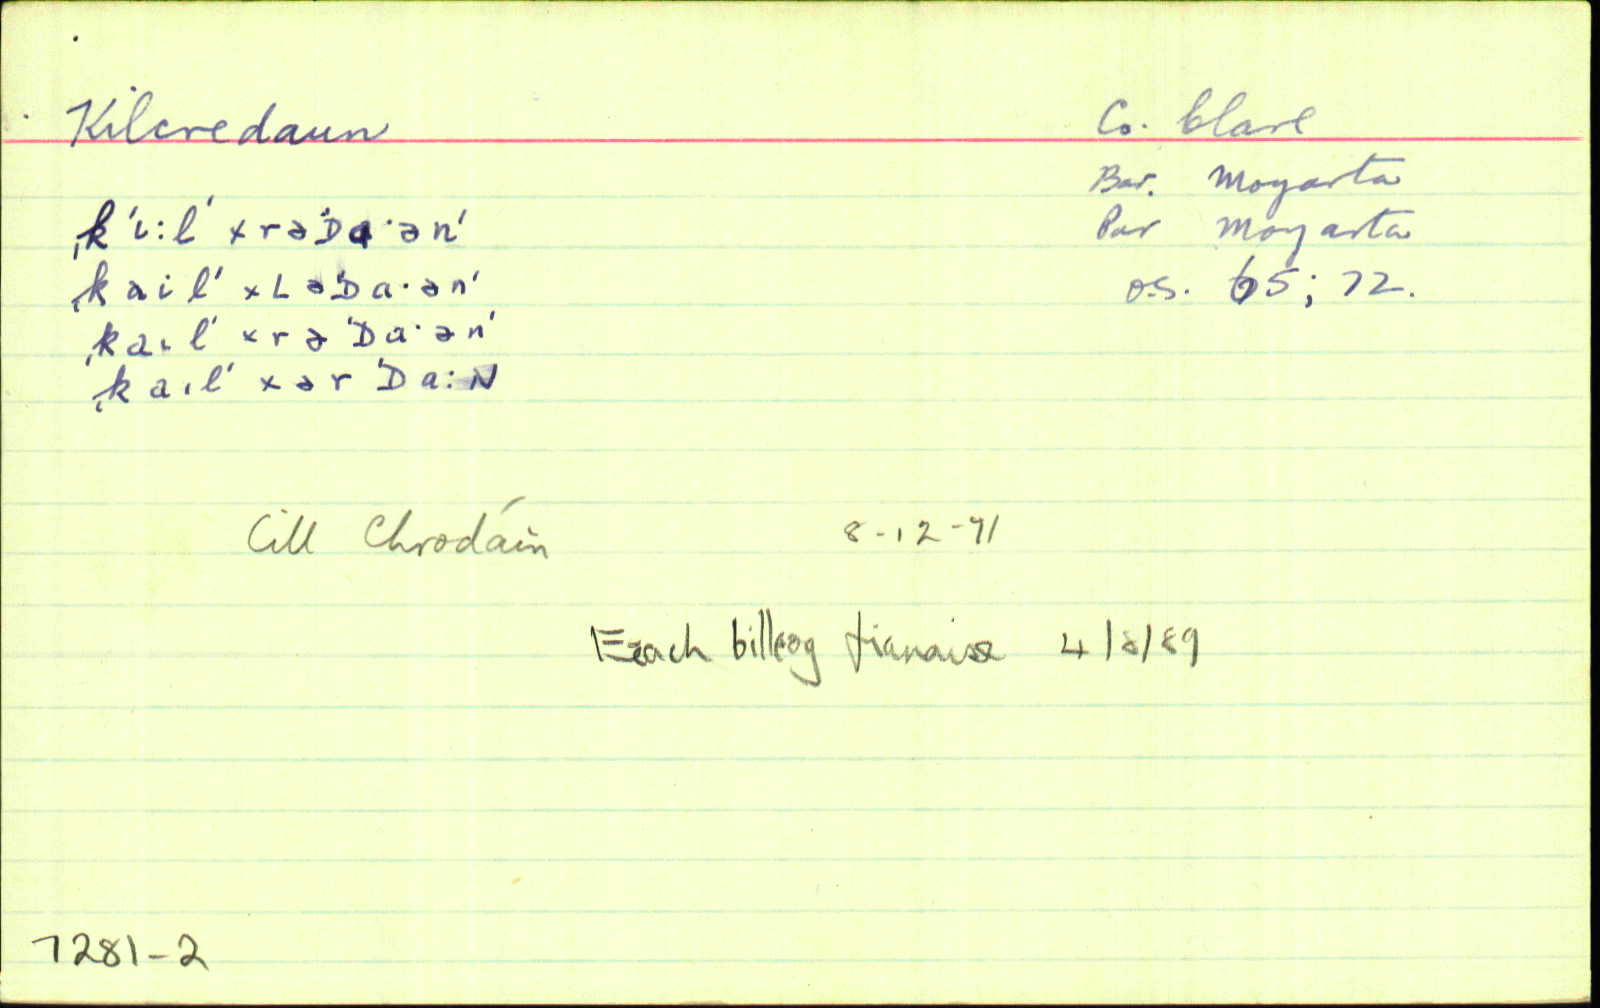 Kilcredaun
Co. Clare
Bar. Moyarta
Par Moyarta
O.S. 65; 72.
ˌk´ι:l´ xrəˈDɑ·ən´
ˌkail´ xLəˈDa·ən´
ˌkaιl´ xrəˈDa·ən´
ˌkaιl´ xərˈDa:N
Cill Chrodáin 8-12-71
Féach billeog fianaise 4/8/89
7281-2